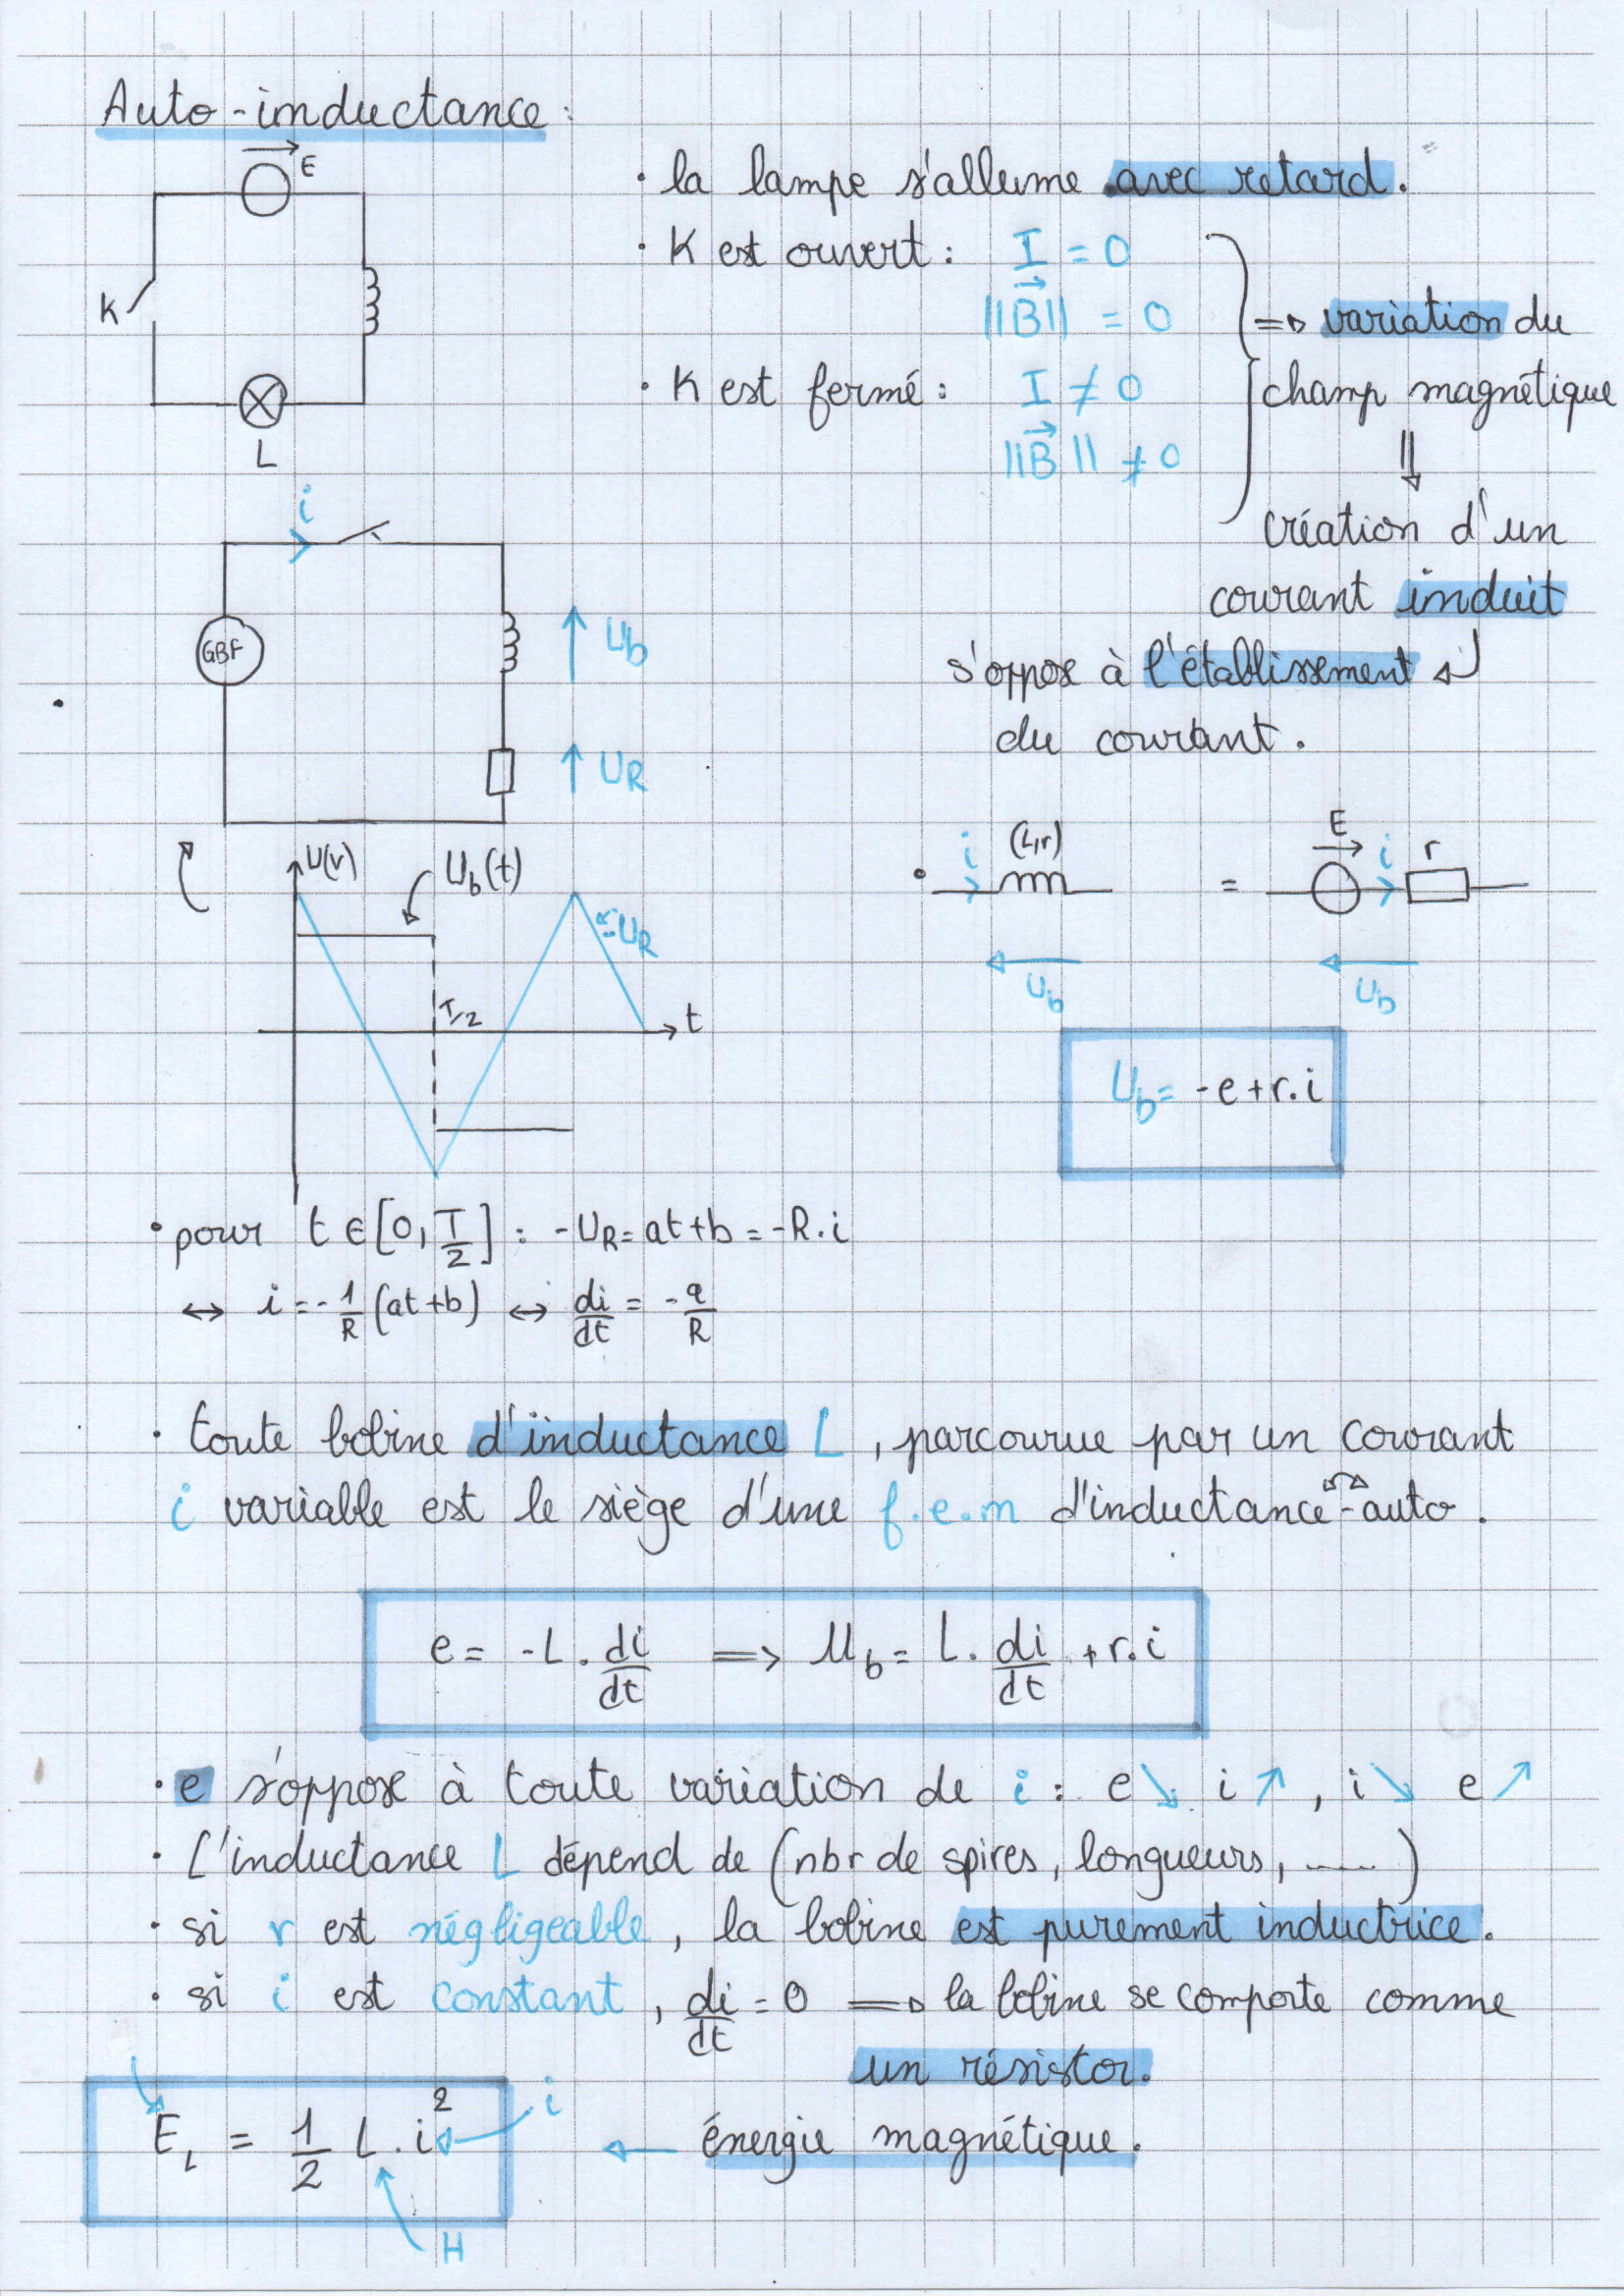 Auto-inductance:
E
K
L
• la lampe s'allume avec retard.
• K est ouvert : I = 0
||B⃗|| = 0
• K est fermé : I ≠ 0
||B⃗|| ≠ 0
=> variation du
champ magnétique
⇓
création d'un
courant induit
s'oppose à l'établissement
du courant.
i
GBF
Ub
UR
U(v)
Ub(t)
-UR
T/2
t
i (L,r) = E i r
Ub Ub
Ub = -e + r.i
• pour t ∈ [0, T/2] : -UR = at + b = -R.i
↔ i = -1/R (at+b) ↔ di/dt = -a/R
• toute bobine d'inductance L, parcourue par un courant
i variable est le siège d'une f.e.m d'inductance-auto.
e = -L . di/dt => Ub = L. di/dt + r.i
• e s'oppose à toute variation de i : e ↘ i ↗, i ↘ e ↗
• L'inductance L dépend de (nbr de spires, longueurs, ......)
• si r est négligeable, la bobine est purement inductrice.
• si i est constant, di/dt = 0 => la bobine se comporte comme
un résistor.
E_L = 1/2 L . i² ← i ← énergie magnétique.
H